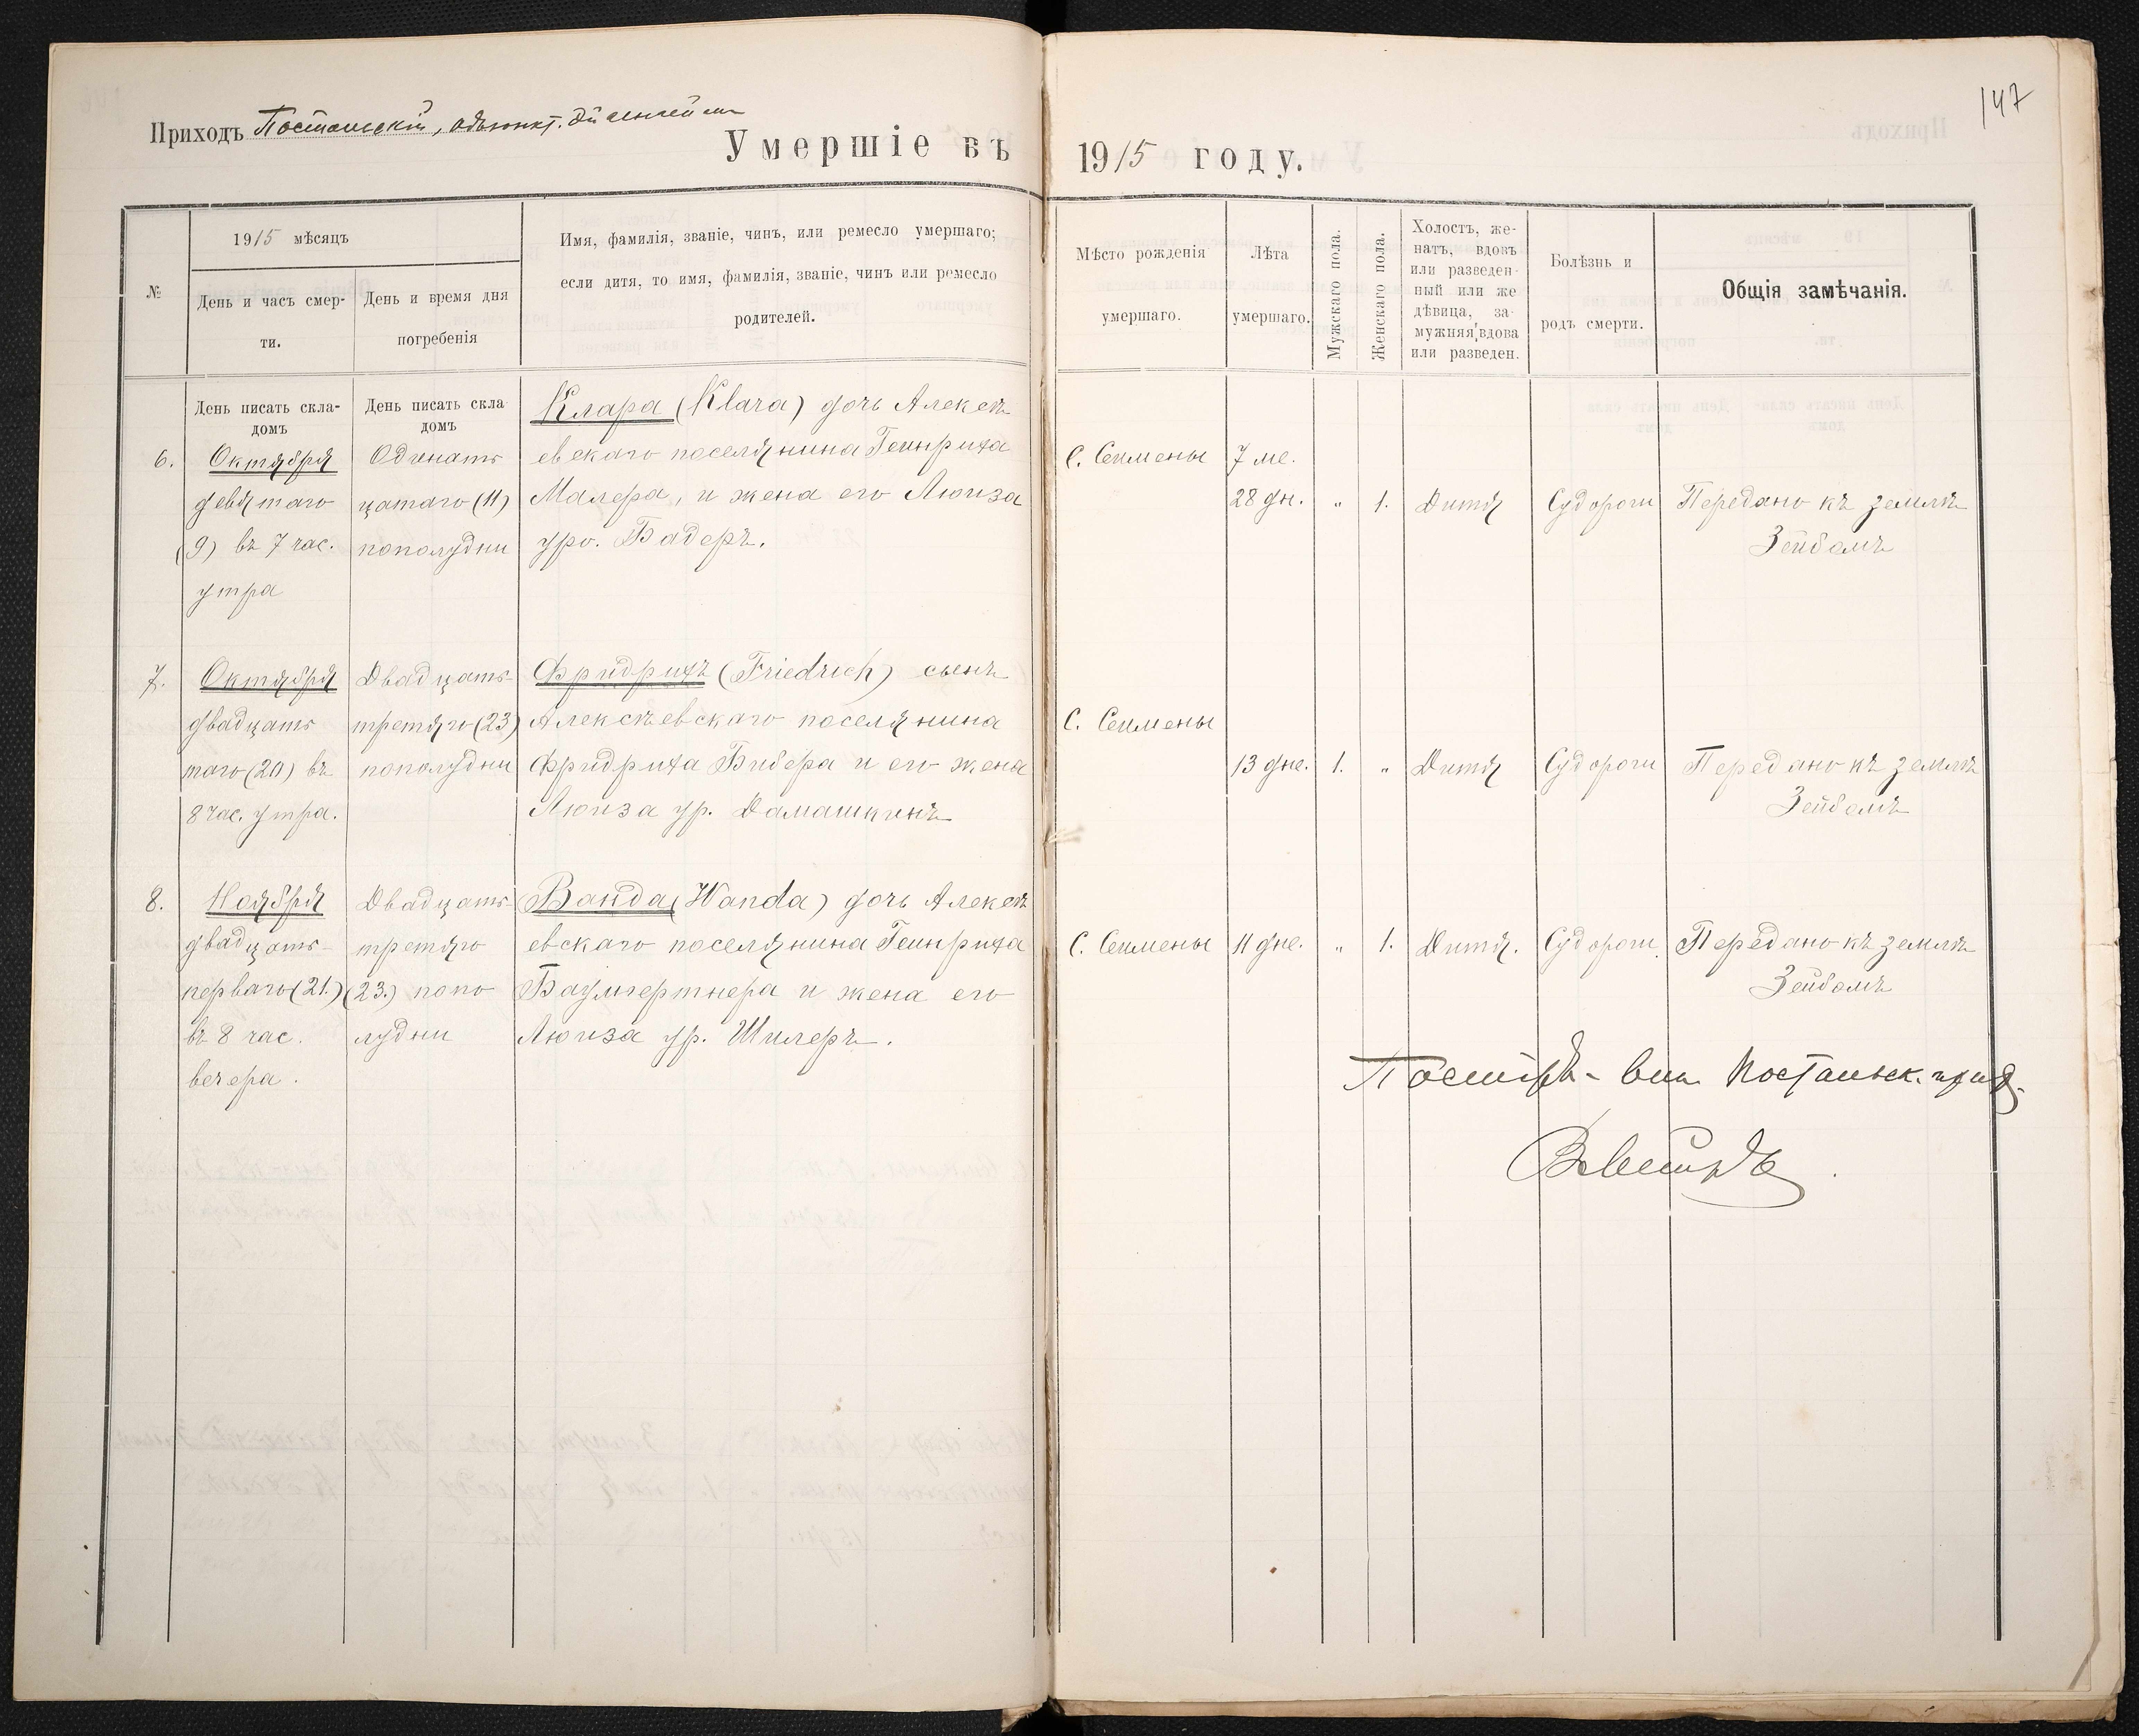 147
Приходъ Постальскій, адъюнкт.
Умершіе въ 1915 году.
№
1915 мѣсяцъ
День и часъ смер-
ти.
День и время дня
погребенія
Имя, фамилія, званіе, чинъ, или ремесло умершаго;
если дитя, то имя, фамилія, званіе, чинъ или ремесло
родителей.
Мѣсто рожденія
умершаго.
Лѣта
умершаго.
Мужскаго пола.
Женскаго пола.
Холостъ, же-
натъ, вдовъ
или разведен-
ный или же
дѣвица, за-
мужняя, вдова
или разведен.
Болѣзнь и
родъ смерти.
Общія замѣчанія.
День писать скла-
домъ
День писать скла
домъ
6.
Октября
девятаго
(9) въ 7 час.
утра
Одинать
цатаго (11)
пополудни
Клара (Klara) дочь Алексѣ
евскаго поселянина Генриха
Малера, и жена его Люиза
уро. Бадеръ.
С. Сеимены
7 ме.
28 дн.
„
1.
Дитя
Судороги
Передано къ землѣ
Зейбомъ
7.
Октября
двадцать
таго (20) въ
8 час. утра.
Двадцать-
третяго (23)
пополудни
Фридрихъ (Friedrich) сынъ
Алексѣевскаго поселянина
Фридриха Бибера и его жена
Люиза ур. Дамашкинъ
С. Сеимены
13 дне.
1.
„
Дитя
Судороги
Передано къ землѣ
Зейбомъ
8.
Ноября
двадцать-
перваго (21.)
въ 8 час.
вечера.
Двадцать-
третяго
(23.) попо
лудни
Ванда (Wanda) дочь Алексѣ
евскаго поселянина Генриха
Баумгертнера и жена его
Люиза ур. Шилеръ.
С. Сеимены
11 дне.
„
1.
Дитя.
Судороги
Передано къ землѣ
Зейбомъ
Постальск.